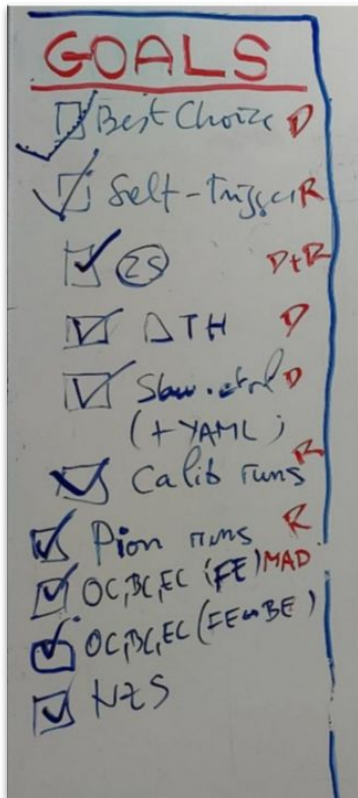 GOALS
Best Choice D
Self-Trigger R
ZS D+R
DTH D
Slow.ctrl D
(+YAML)
Calib runs R
Pion runs R
OC,BC,EC (FE) MAD
OC,BC,EC (FE↔BE)
NZS